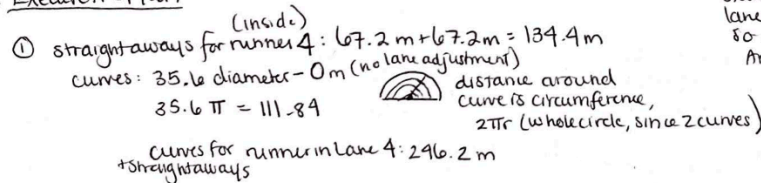 (inside)
① straightaways for runner 4: 67.2 m + 67.2 m = 134.4 m
curves: 35.6 diameter - 0 m (no lane adjustment)
35.6 π = 111.84
distance around
curve is circumference,
2πr (whole circle, since 2 curves)
curves for runner in Lane 4: 246.2 m
+ straightaways
lane
so